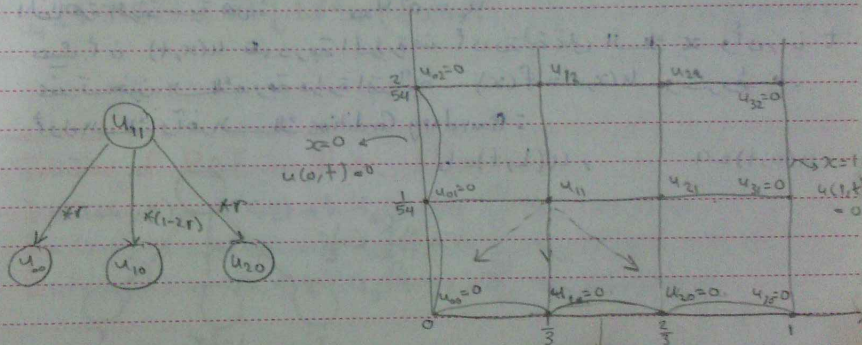 u₁₁
*r
*(1-2r)
*r
u₀₀
u₁₀
u₂₀
2/54
u₀₂=0
u₁₂
u₂₂
u₃₂=0
x=0
u(0,t)=0
1/54
u₀₁=0
u₁₁
u₂₁
u₃₁=0
x=1
u(1,t)
=0
u₀₀=0
u₁₀=0
u₂₀=0
u₃₀=0
0
1/3
2/3
1